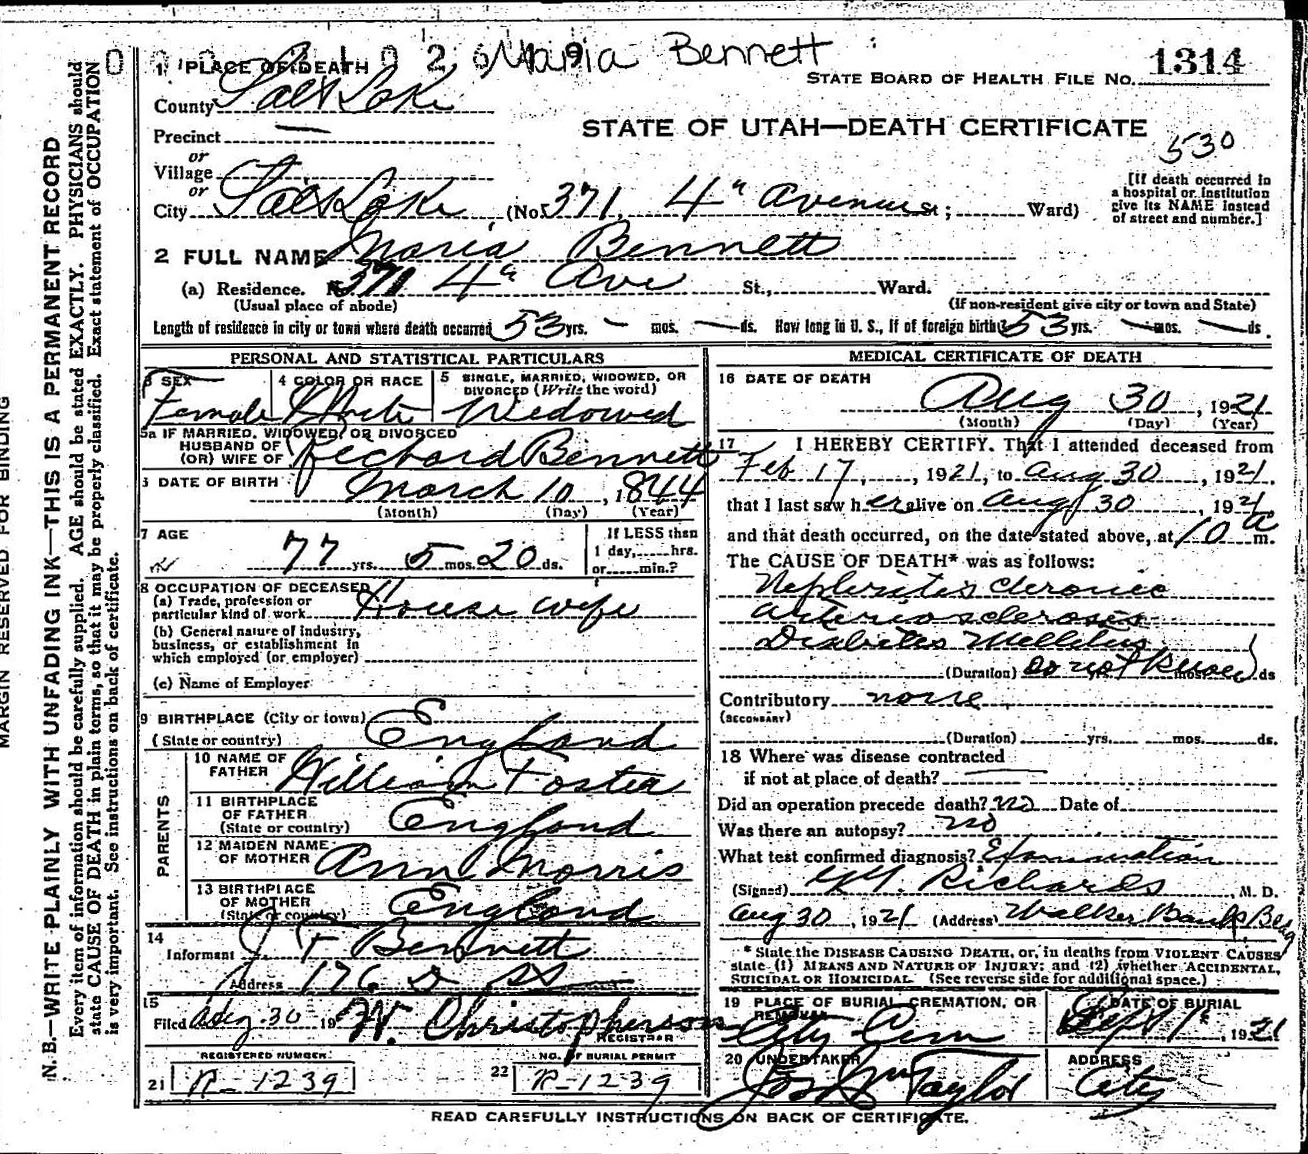 Maria Bennett
1 PLACE OF DEATH
STATE BOARD OF HEALTH FILE No. 1314
County Salt Lake
STATE OF UTAH—DEATH CERTIFICATE
Precinct —
530
or
Village
or
City Salt Lake (No. 371 4" Avenue St.; Ward)
[If death occurred in
a hospital or institution
give its NAME instead
of street and number.]
2 FULL NAME Maria Bennett
(a) Residence. No. 371 4" Ave St., Ward.
(Usual place of abode) (If non-resident give city or town and State)
Length of residence in city or town where death occurred 53 yrs. — mos. — ds. How long in U. S., if of foreign birth? 53 yrs. — mos. — ds.
PERSONAL AND STATISTICAL PARTICULARS
3 SEX Female
4 COLOR OR RACE White
5 SINGLE, MARRIED, WIDOWED, OR
DIVORCED (Write the word)
Widowed
5a IF MARRIED, WIDOWED, OR DIVORCED
HUSBAND OF
(OR) WIFE OF Richard Bennett
6 DATE OF BIRTH March 10, 1844
(Month) (Day) (Year)
7 AGE
77 yrs. 5 mos. 20 ds.
If LESS than
1 day, hrs.
or min.?
8 OCCUPATION OF DECEASED
(a) Trade, profession or
particular kind of work House wife
(b) General nature of industry,
business, or establishment in
which employed (or employer)
(c) Name of Employer
9 BIRTHPLACE (City or town)
(State or country) England
PARENTS
10 NAME OF
FATHER William Foster
11 BIRTHPLACE
OF FATHER
(State or country) England
12 MAIDEN NAME
OF MOTHER Ann Morris
13 BIRTHPLACE
OF MOTHER
(State or country) England
14
Informant J F Bennett
Address 176
15
Filed Aug. 30 19 W. Christopherson
REGISTRAR
REGISTERED NUMBER
21 R-1239
NO. OF BURIAL PERMIT
22 R-1239
MEDICAL CERTIFICATE OF DEATH
16 DATE OF DEATH
Aug 30, 1921
(Month) (Day) (Year)
17 I HEREBY CERTIFY. That I attended deceased from
Feb 17, 1921, to Aug 30, 1921.
that I last saw her alive on Aug 30, 1921
and that death occurred, on the date stated above, at 10 a m.
The CAUSE OF DEATH* was as follows:
Nephritis chronic
arteriosclerosis
Diabetes Mellitus
(Duration) do not know yrs. mos. ds
Contributory none
(SECONDARY)
(Duration) yrs. mos. ds.
18 Where was disease contracted
if not at place of death? —
Did an operation precede death? no Date of
Was there an autopsy? no
What test confirmed diagnosis? Examination
(Signed) Richards M. D.
Aug 30, 1921 (Address) Walker Bank Bldg
* State the DISEASE CAUSING DEATH, or, in deaths from VIOLENT CAUSES
state (1) MEANS AND NATURE OF INJURY; and (2) whether ACCIDENTAL,
SUICIDAL OR HOMICIDAL. (See reverse side for additional space.)
19 PLACE OF BURIAL, CREMATION, OR
REMOVAL
City Cem
DATE OF BURIAL
Sept 1, 1921
20 UNDERTAKER
Jos Wm Taylor
ADDRESS
City
READ CAREFULLY INSTRUCTIONS ON BACK OF CERTIFICATE.
MARGIN RESERVED FOR BINDING
N. B.—WRITE PLAINLY WITH UNFADING INK—THIS IS A PERMANENT RECORD
Every item of information should be carefully supplied. AGE should be stated EXACTLY. PHYSICIANS should
state CAUSE OF DEATH in plain terms, so that it may be properly classified. Exact statement of OCCUPATION
is very important. See instructions on back of certificate.